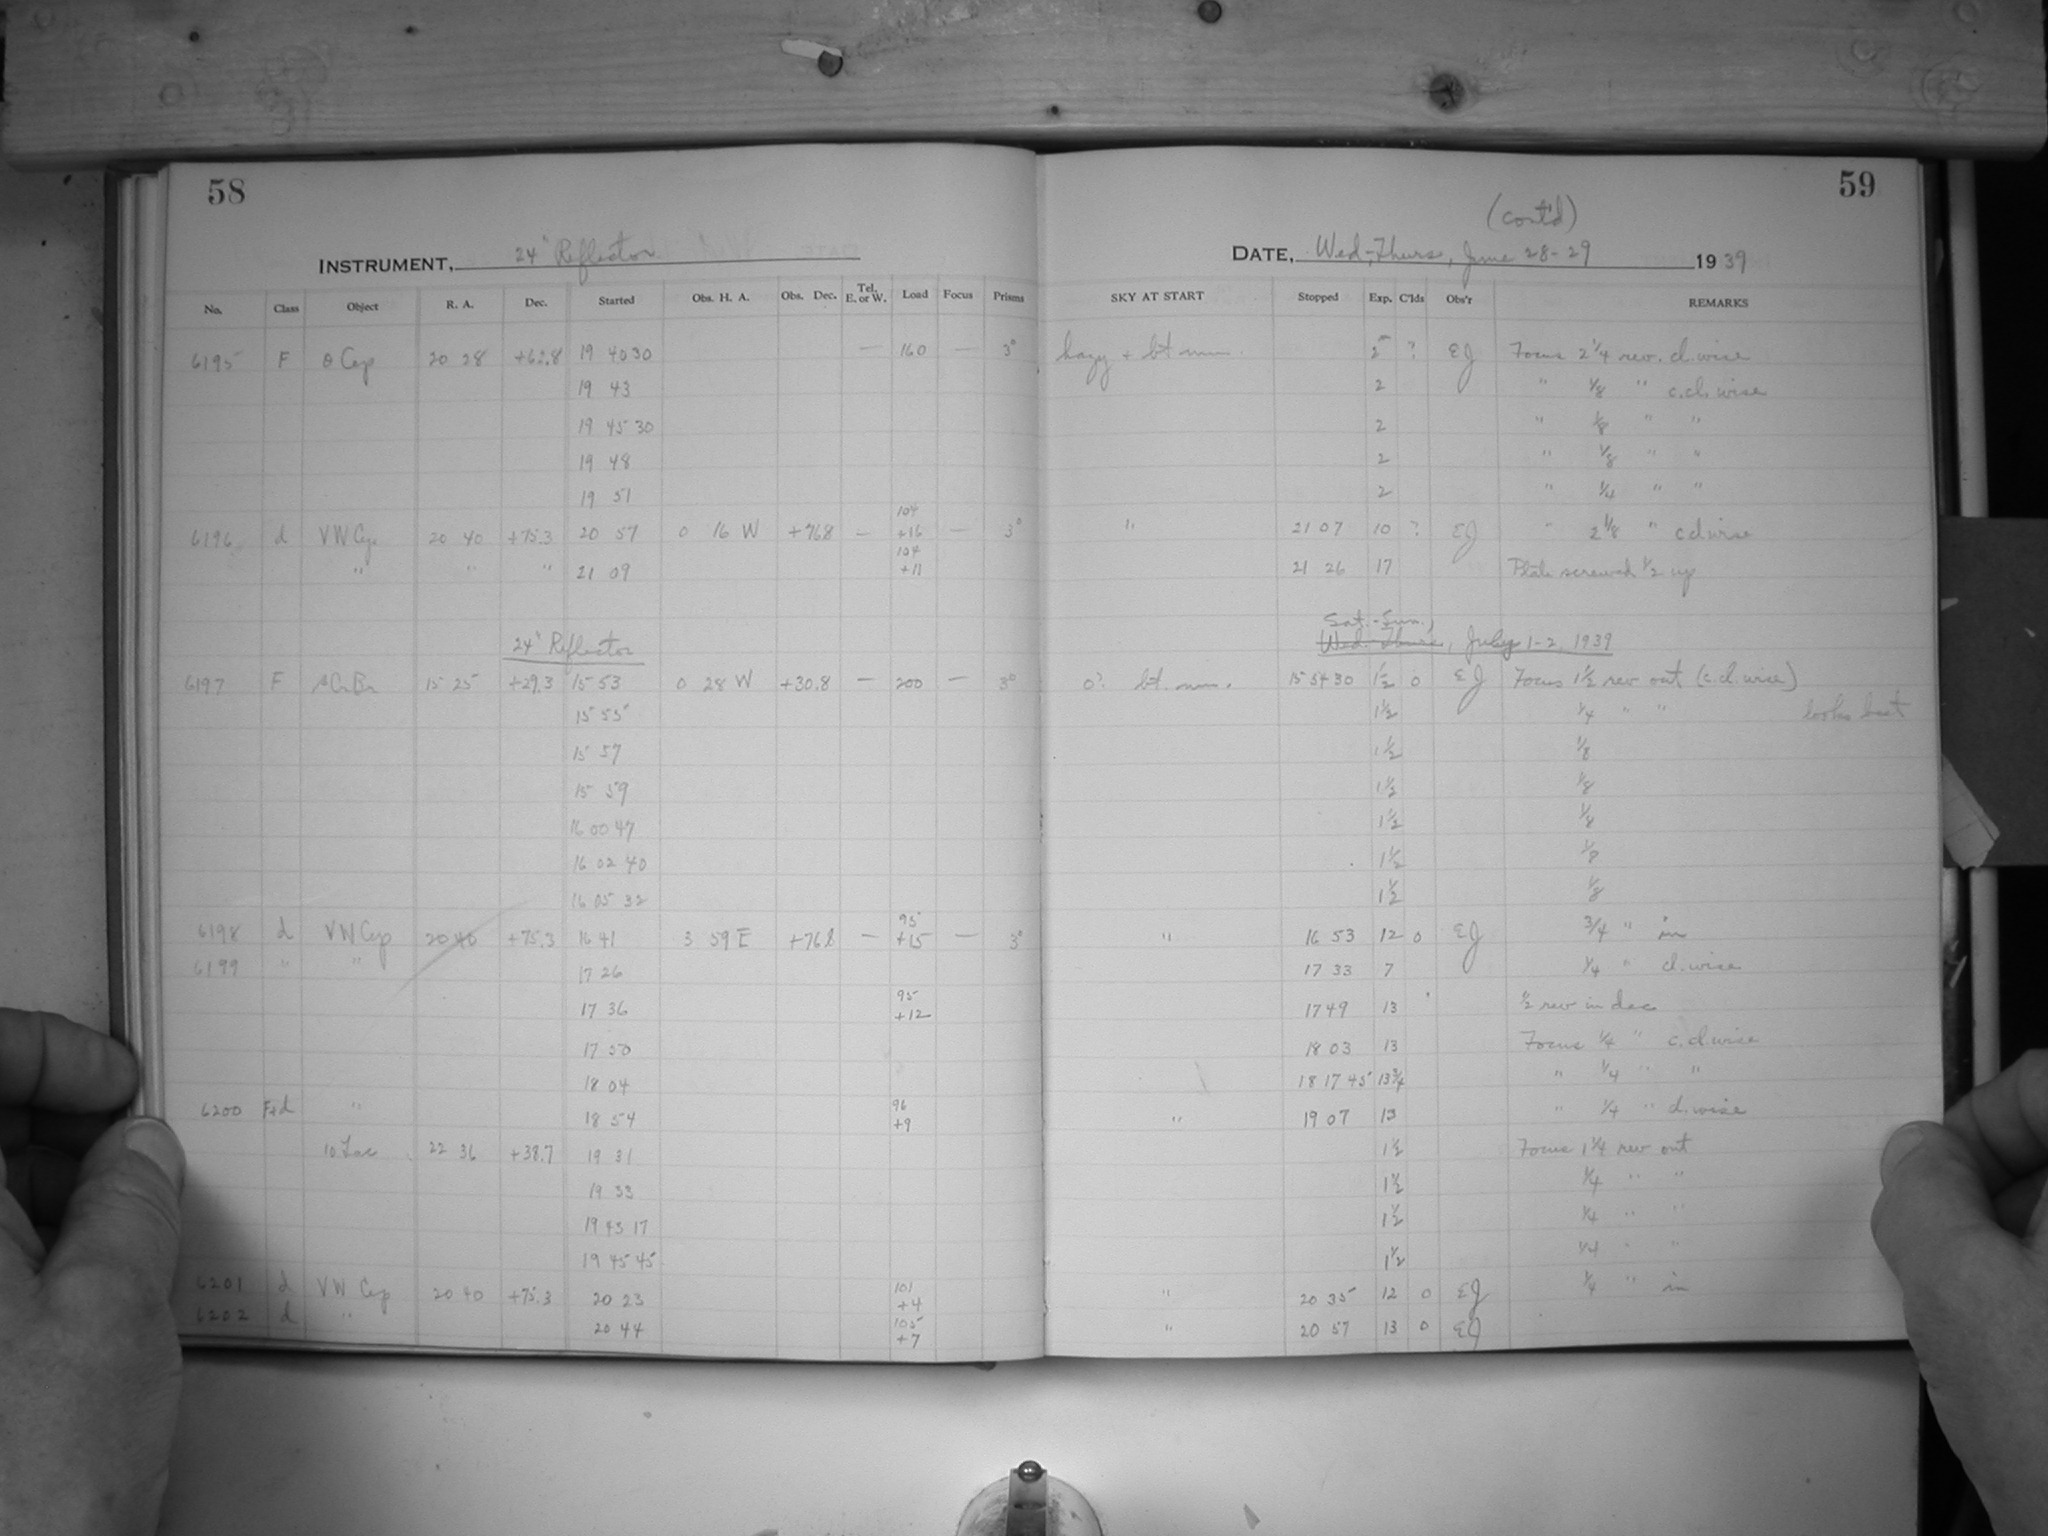 58
59
(cont'd)
INSTRUMENT, 24" Reflector DATE, Wed-Thurs, June 28-29 1939
No. Class Object R. A. Dec. Started Obs. H. A. Obs. Dec. Tel. E. or W. Load Focus Prisms SKY AT START Stopped Exp. C'lds Obs'r REMARKS
6195 F θ Cep 20 28 +62.8 19 40 30 — 160 — 3° hazy + bt moon. ? EJ Focus 2 1/4 rev. cl. wise
19 43 2 " 1/8 " c.cl. wise
19 45 30 2 " 1/8 " "
19 48 2 " 1/8 " "
19 51 2 " 1/4 " "
6196 d VW Cep 20 40 +75.3 20 57 0 16 W +76.8 — 104 +16 — 3° " 21 07 10 ? EJ " 2 1/8 " c cl wise
" " " 21 09 104 +11 21 26 17 Plate screwed 1/2 up
24" Reflector Sat.-Sun., Wed-Thurs, July 1-2, 1939
6197 F 15 25 +29.3 15 53 0 28 W +30.8 — 200 — 3° 0? bt. moon. 15 54 30 1 1/2 0 EJ Focus 1 1/2 rev out (c.cl. wise)
15 55 1 1/2 1/4 " " looks best
15 57 1 1/2 1/8
15 59 1 1/2 1/8
16 00 47 1 1/2 1/8
16 02 40 1 1/2 1/8
16 05 32 1 1/2 1/8
6198 d VW Cep 20 40 +75.3 16 41 3 59 E +76.8 — 95 +15 — 3° " 16 53 12 0 EJ 3/4 " in
6199 " " 17 26 17 33 7 1/4 " cl. wise
17 36 95 +12 17 49 13 1/2 rev in dec
17 50 18 03 13 Focus 1/4 " c.cl. wise
18 04 18 17 45 13 3/4 " 1/4 " "
6200 F+d " 18 54 96 +9 " 19 07 13 " 1/4 " cl. wise
10 Lac 22 36 +38.7 19 31 1 1/2 Focus 1 1/4 rev out
19 33 1 1/2 1/4 " "
19 43 17 1 1/2 1/4 " "
19 45 45 1 1/2 1/4 " "
6201 d VW Cep 20 40 +75.3 20 23 101 +4 " 20 35 12 0 EJ 1/4 " in
6202 d " 20 44 105 +7 " 20 57 13 0 EJ